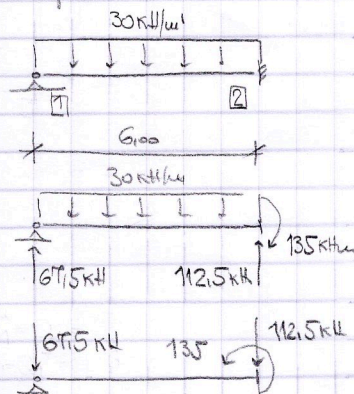 30кН/м'
1
2
6,00
30кН/м
135кНм
67,5кН
112,5кН
67,5кН
135
112,5кН